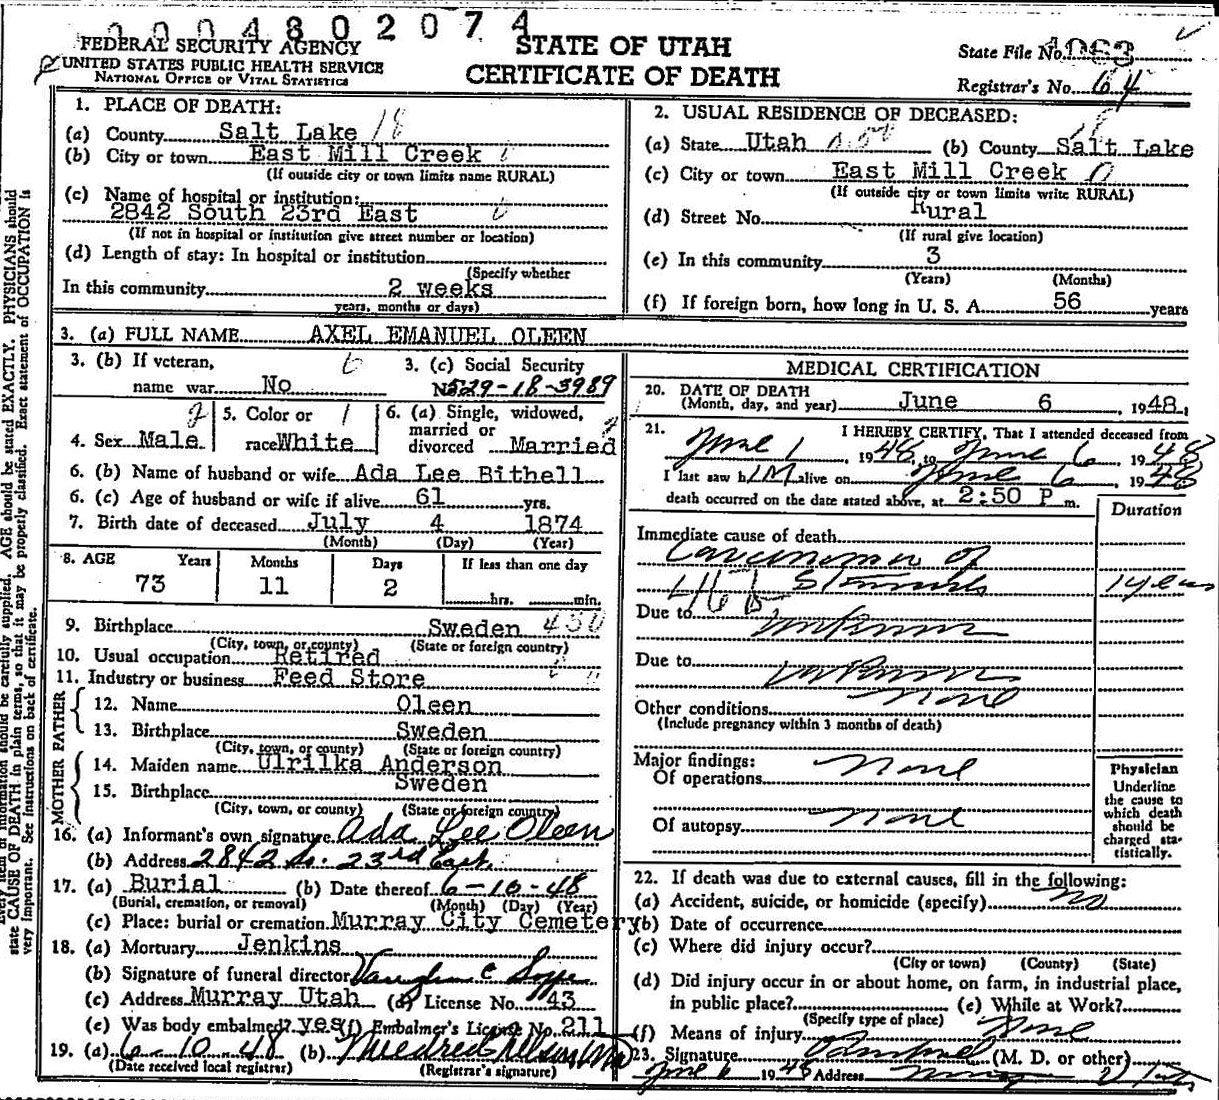 0004802074
FEDERAL SECURITY AGENCY
UNITED STATES PUBLIC HEALTH SERVICE
NATIONAL OFFICE OF VITAL STATISTICS
STATE OF UTAH
CERTIFICATE OF DEATH
State File No. 1063
Registrar's No. 64
1. PLACE OF DEATH:
(a) County Salt Lake 18
(b) City or town East Mill Creek
(If outside city or town limits name RURAL)
(c) Name of hospital or institution:
2842 South 23rd East
(If not in hospital or institution give street number or location)
(d) Length of stay: In hospital or institution
(Specify whether
In this community 2 weeks
years, months or days)
2. USUAL RESIDENCE OF DECEASED:
(a) State Utah (b) County Salt Lake
(c) City or town East Mill Creek 0
(If outside city or town limits write RURAL)
(d) Street No. Rural
(If rural give location)
(e) In this community 3
(Years) (Months)
(f) If foreign born, how long in U. S. A. 56 years
3. (a) FULL NAME AXEL EMANUEL OLEEN
3. (b) If veteran, 3. (c) Social Security
name war No No. 529-18-3989
4. Sex Male 5. Color or race White 6. (a) Single, widowed, married or divorced Married
6. (b) Name of husband or wife Ada Lee Bithell
6. (c) Age of husband or wife if alive 61 yrs.
7. Birth date of deceased July 4 1874
(Month) (Day) (Year)
8. AGE Years Months Days If less than one day
73 11 2 hrs. min.
9. Birthplace Sweden 430
(City, town, or county) (State or foreign country)
10. Usual occupation Retired
11. Industry or business Feed Store
FATHER
12. Name Oleen
13. Birthplace Sweden
(City, town, or county) (State or foreign country)
MOTHER
14. Maiden name Ulrilka Anderson
15. Birthplace Sweden
(City, town, or county) (State or foreign country)
16. (a) Informant's own signature Ada Lee Oleen
(b) Address 2842 So. 23rd East
17. (a) Burial (b) Date thereof 6-10-48
(Burial, cremation, or removal) (Month) (Day) (Year)
(c) Place: burial or cremation Murray City Cemetery
18. (a) Mortuary Jenkins
(b) Signature of funeral director Vaughn C
(c) Address Murray Utah (d) License No. 43
(e) Was body embalmed? yes (f) Embalmer's License No. 211
19. (a) 6-10-48 (b) Mildred
(Date received local registrar) (Registrar's signature)
MEDICAL CERTIFICATION
20. DATE OF DEATH
(Month, day, and year) June 6, 1948
21. I HEREBY CERTIFY, That I attended deceased from
June 1, 1948, to June 6 1948
I last saw hIM alive on June 6, 1948
death occurred on the date stated above, at 2:50 P m.
Duration
Immediate cause of death
Carcinoma of
Stomach 1 year
Due to unknown
Due to unknown
none
Other conditions
(Include pregnancy within 3 months of death)
Major findings:
Of operations none
Of autopsy none
Physician
Underline
the cause to
which death
should be
charged sta-
tistically.
22. If death was due to external causes, fill in the following:
(a) Accident, suicide, or homicide (specify) no
(b) Date of occurrence
(c) Where did injury occur?
(City or town) (County) (State)
(d) Did injury occur in or about home, on farm, in industrial place,
in public place? (e) While at Work?
(Specify type of place)
(f) Means of injury None
23. Signature (M. D. or other)
June 6 1948 Address Utah
AGE should be stated EXACTLY. PHYSICIANS should
state CAUSE OF DEATH in plain terms, so that it may be properly classified. Exact statement of OCCUPATION is
very important. See instructions on back of certificate.